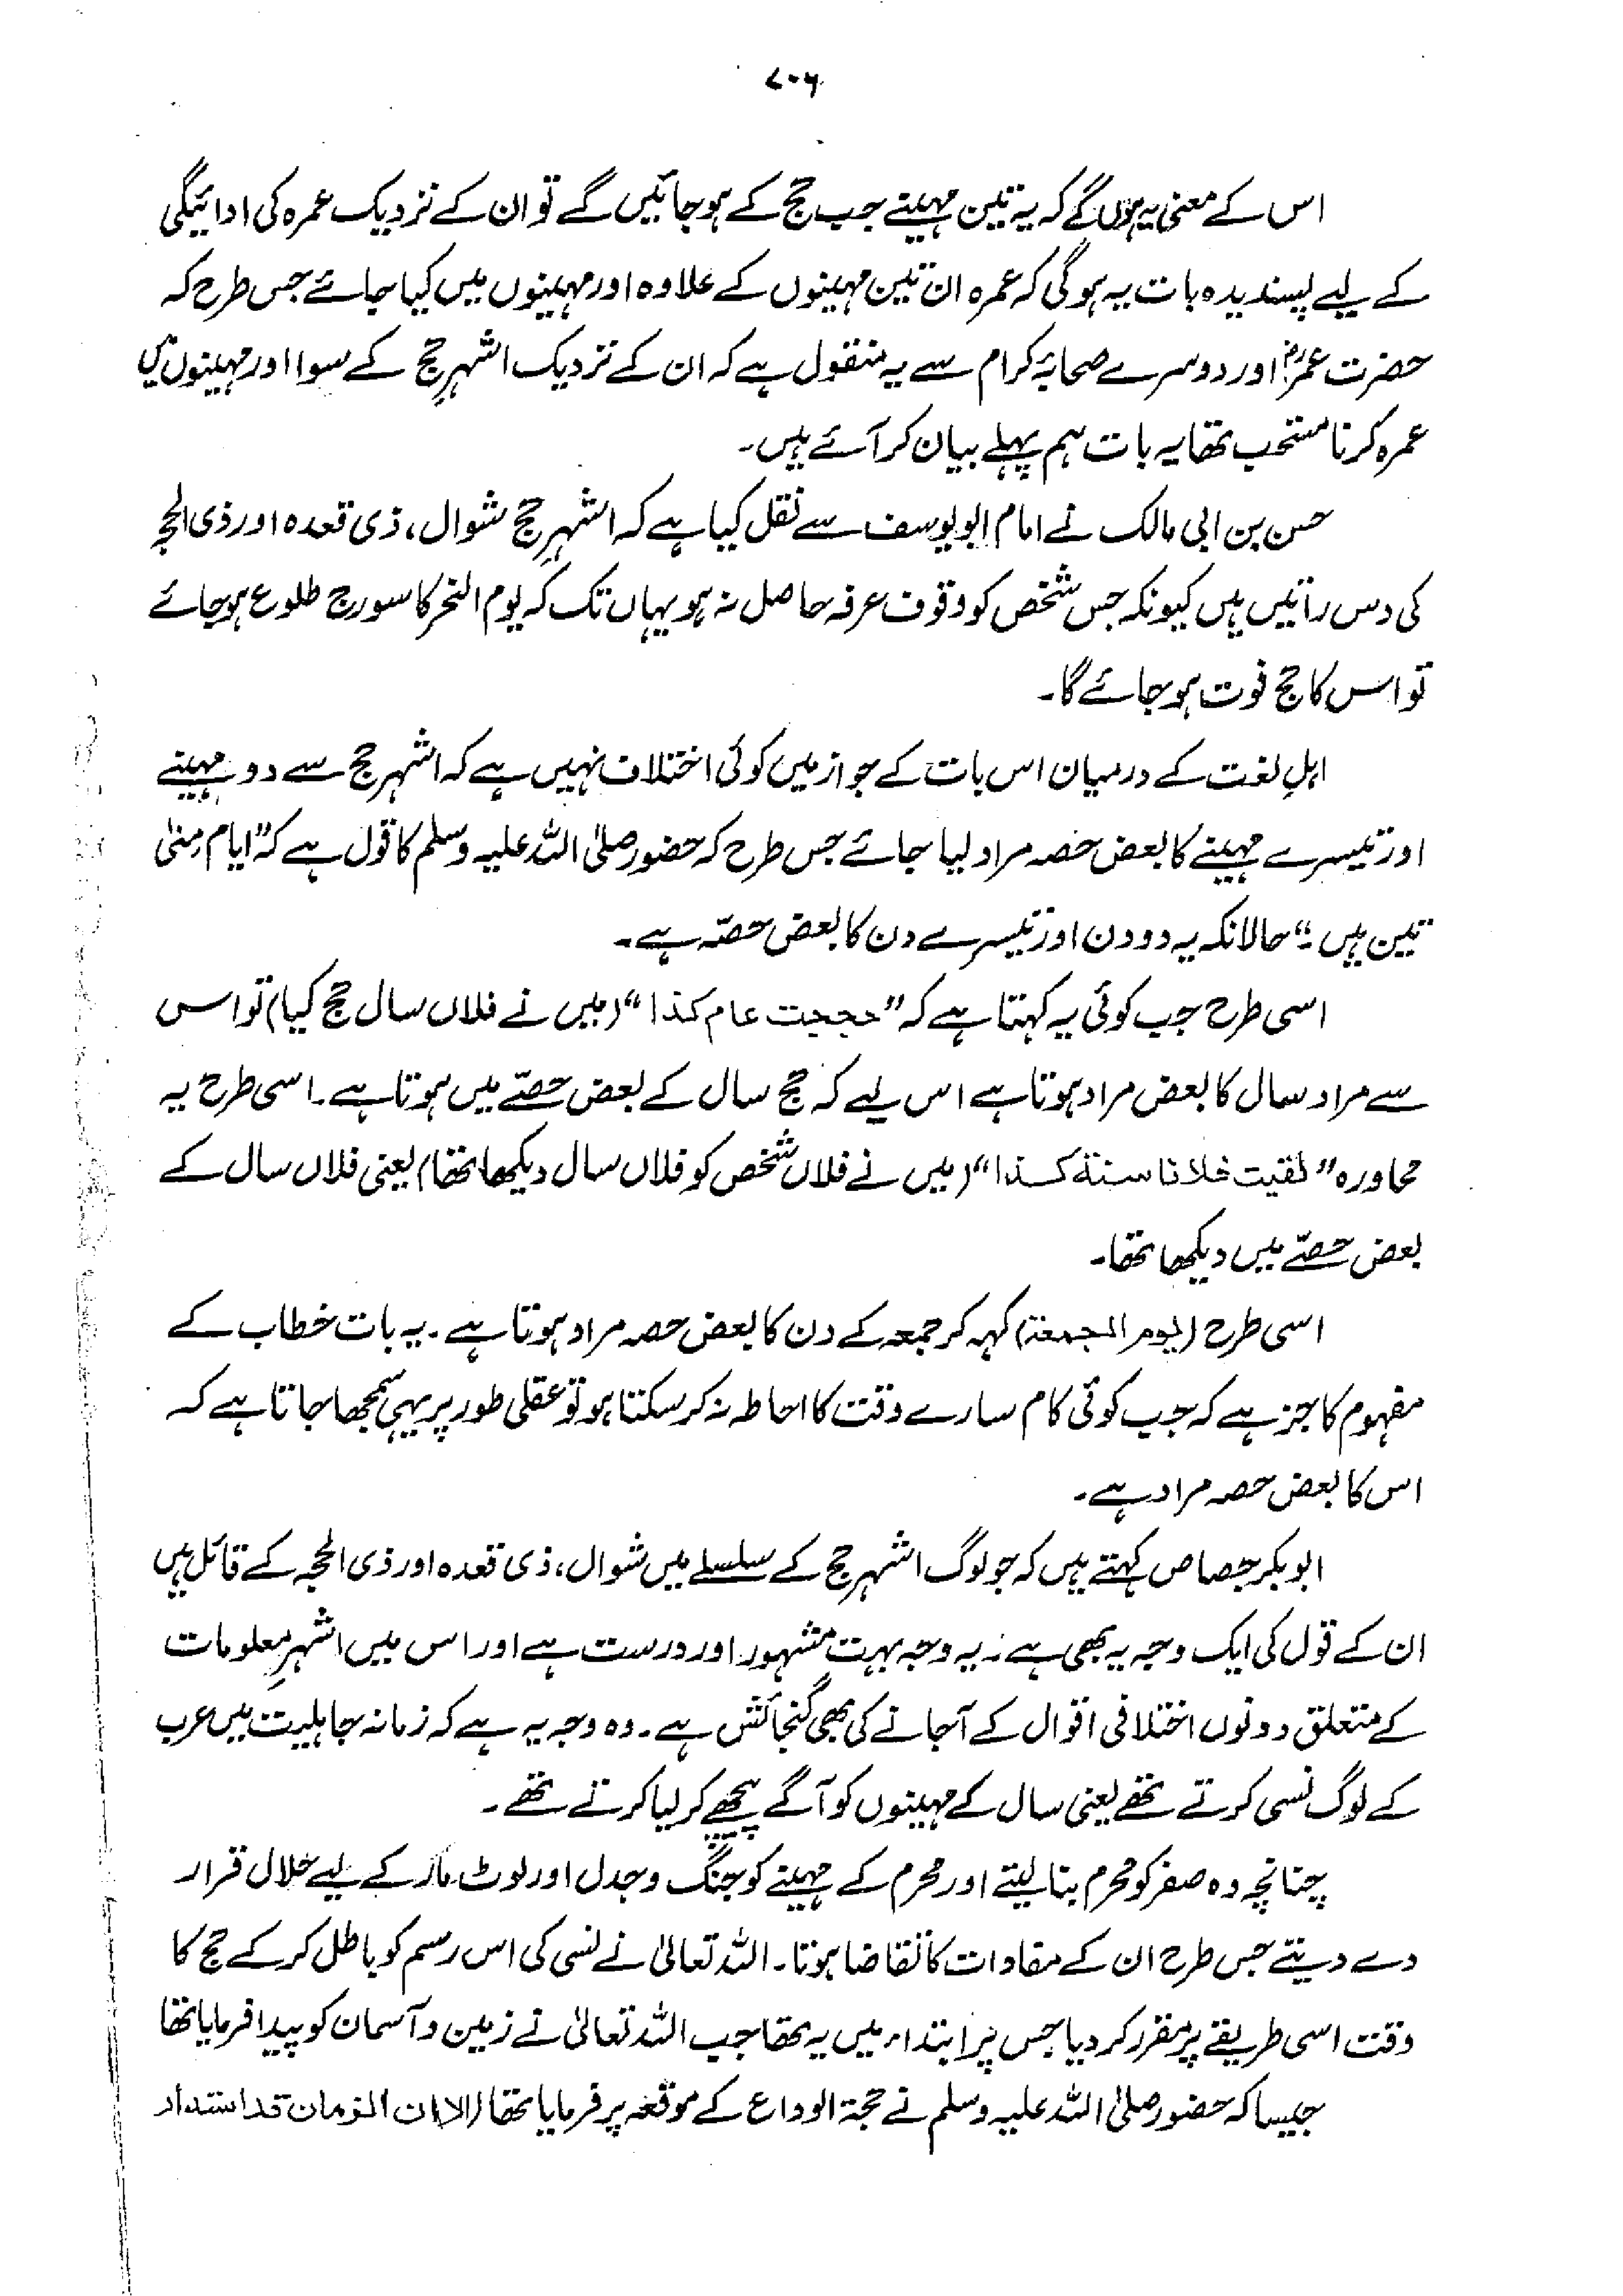 ۷۰۶
اس کے معنی یہ ہوں گے کہ یہ تین مہینے جب حج کے ہو جائیں گے تو ان کے نزدیک عمرہ کی ادائیگی
کے لیے پسندیدہ بات یہ ہوگی کہ عمرہ ان تین مہینوں کے علاوہ اور مہینوں میں کیا جائے جس طرح کہ
حضرت عمرؓ اور دوسرے صحابہ کرام سے یہ منقول ہے کہ ان کے نزدیک اشہرِ حج کے سوا اور مہینوں میں
عمرہ کرنا مستحب تھا یہ بات ہم پہلے بیان کر آئے ہیں۔
حسن بن ابی مالک نے امام ابو یوسف سے نقل کیا ہے کہ اشہرِ حج شوال، ذی قعدہ اور ذی الحجہ
کی دس راتیں ہیں کیونکہ جس شخص کو وقوف عرفہ حاصل نہ ہو یہاں تک کہ یوم النحر کا سورج طلوع ہو جائے
تو اس کا حج فوت ہو جائے گا۔
اہلِ لغت کے درمیان اس بات کے جواز میں کوئی اختلاف نہیں ہے کہ اشہر حج سے دو مہینے
اور تیسرے مہینے کا بعض حصہ مراد لیا جائے جس طرح کہ حضور صلی اللہ علیہ وسلم کا قول ہے کہ "ایام مِنیٰ
تین ہیں۔" حالانکہ یہ دو دن اور تیسرے دن کا بعض حصّہ ہے۔
اسی طرح جب کوئی یہ کہتا ہے کہ "حججت عام کذا" (میں نے فلاں سال حج کیا) تو اس
سے مراد سال کا بعض مراد ہوتا ہے اس لیے کہ حج سال کے بعض حصّے میں ہوتا ہے۔ اسی طرح یہ
محاورہ "لقیت فلانا سنۃ کذا" (میں نے فلاں شخص کو فلاں سال دیکھا تھا) یعنی فلاں سال کے
بعض حصّے میں دیکھا تھا۔
اسی طرح (یوم الجمعۃ) کہہ کر جمعہ کے دن کا بعض حصہ مراد ہوتا ہے۔ یہ بات خطاب کے
مفہوم کا جز ہے کہ جب کوئی کام سارے وقت کا احاطہ نہ کر سکتا ہو تو عقلی طور پر یہی سمجھا جاتا ہے کہ
اس کا بعض حصہ مراد ہے۔
ابوبکر جصاص کہتے ہیں کہ جو لوگ اشہر حج کے سلسلے میں شوال، ذی قعدہ اور ذی الحجہ کے قائل ہیں
ان کے قول کی ایک وجہ یہ بھی ہے۔ یہ وجہ بہت مشہور اور درست ہے اور اس میں اشہرِ معلومات
کے متعلق دونوں اختلافی اقوال کے آجانے کی بھی گنجائش ہے۔ وہ وجہ یہ ہے کہ زمانہ جاہلیت میں عرب
کے لوگ نسی کرتے تھے یعنی سال کے مہینوں کو آگے پیچھے کر لیا کرتے تھے۔
چنانچہ وہ صفر کو محرم بنا لیتے اور محرم کے مہینے کو جنگ و جدل اور لوٹ مار کے لیے حلال قرار
دے دیتے جس طرح ان کے مفادات کا تقاضا ہوتا۔ اللہ تعالیٰ نے نسی کی اس رسم کو باطل کر کے حج کا
وقت اسی طریقے پر مقرر کر دیا جس پر ابتداء میں یہ تھا جب اللہ تعالیٰ نے زمین و آسمان کو پیدا فرمایا تھا
جیسا کہ حضور صلی اللہ علیہ وسلم نے حجۃ الوداع کے موقعہ پر فرمایا تھا (الا ان الزمان قد استدار